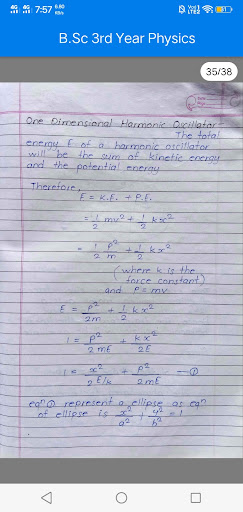 7:57
B.Sc 3rd Year Physics
35/38
One Dimensional Harmonic Oscillator -
The total
energy E of a harmonic oscillator
will be the sum of kinetic energy
and the potential energy
Therefore,
E = K.E. + P.E.
= 1/2 mv² + 1/2 kx²
= 1/2 p²/m + 1/2 kx²
(where k is the
force constant)
and P = mv
E = p²/2m + 1/2 kx²
1 = p²/2mE + kx²/2E
1 = x²/2E/k + p²/2mE —①
eqⁿ ① represent a ellipse as eqⁿ
of ellipse is x²/a² + y²/b² = 1